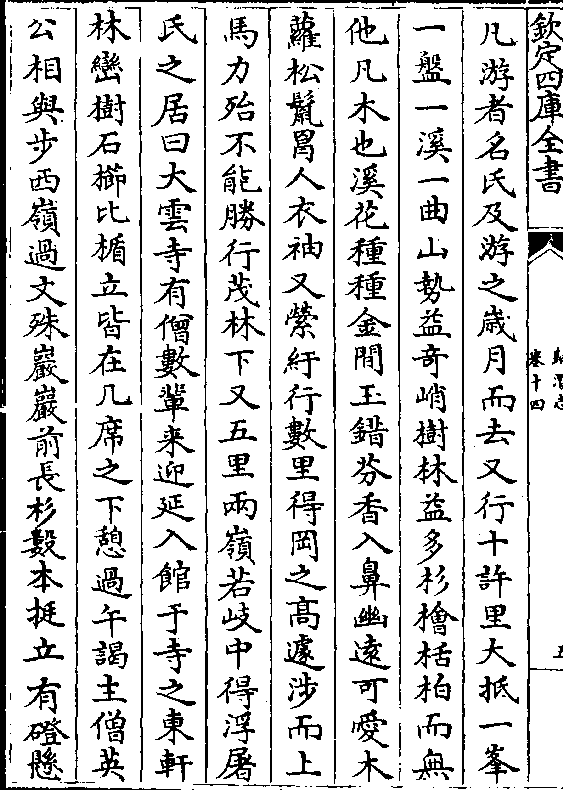 欽定四庫全書
卷十四
凡游者名氏及游之歲月而去又行十許里大抵一峯
一盤一溪一曲山勢益奇峭樹林益多杉檜栝柏而無
他凡木也溪花種種金間玉錯芬香入鼻幽逺可愛木
蘿松鬛罥人衣袖又縈紆行數里得岡之髙遽涉而上
馬力殆不能勝行茂林下又五里兩嶺若岐中得浮屠
氏之居曰大雲寺有僧數軰来迎延入館于寺之東軒
林巒樹石櫛比楯立皆在几席之下憩過午謁主僧英
公相與步西嶺過文殊巖巖前長杉數本挺立有磴懸